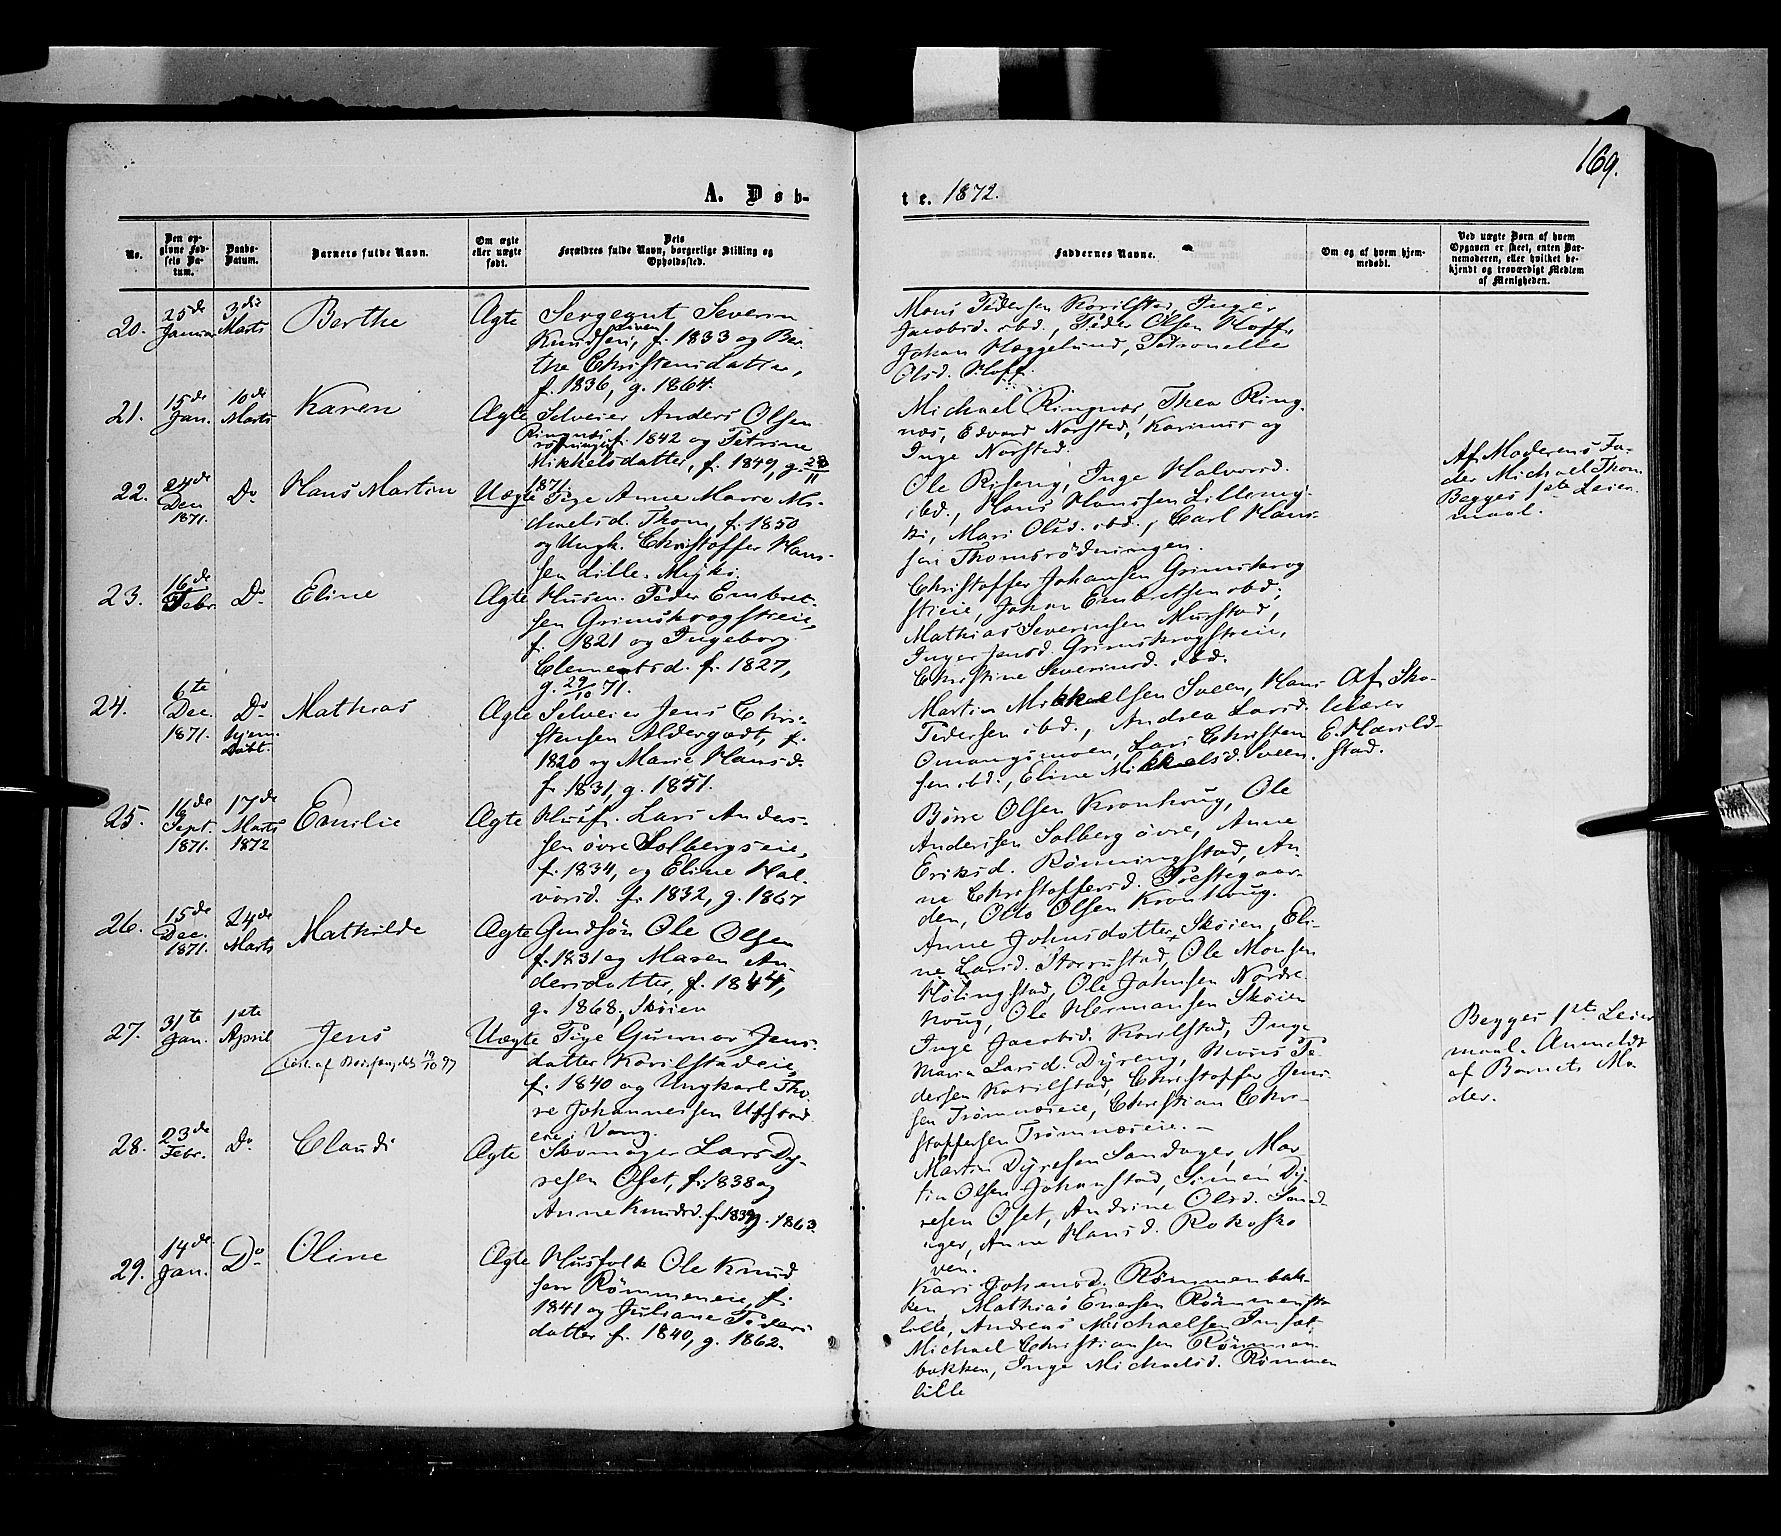 169.
A. Døb-
te. 1872.
No.
Den op-
givne Fød-
sels Da-
tum.
Daabs-
Datum.
Barnets fulde Navn.
Om ægte
eller uægte
født.
Dets
Forældres fulde Navn, borgerlige Stilling og
Opholdssted.
Faddernes Navne.
Om og af hvem hjem-
medøbt.
Ved uægte Børn af hvem
Opgaven er skeet, enten Bar-
nemoderen, eller hvilket be-
kjendt og troværdigt Medlem
af Menigheden.
20.
25de
Januar
3die
Marts
Berthe
Ægte
Sergeant Severin
Knudsen, f. 1833 og Ber-
the Christensdatter,
f. 1836, g. 1864.
Mons Pedersen Korilstad, Inger
Jacobsd. ibd., Peder Olsen Hoff,
Johan Hæggelund, Petronelle
Olsd. Hoff.
21.
15de
Jan.
10de
Marts
Karen
Ægte
Selveier Anders Olsen
Ringnæs
f. 1842 og Petrine
Mikkelsdatter, f. 1849, g. 28/11
1871.
Michael Ringnæs, Thea Ring-
næs, Edvard Norstad, Karinus og
Inge Norstad.
22.
24de
Dec.
1871.
Do
Hans Martin
Uægte
Pige Anne Marie Mi-
chaelsd. Thom, f. 1850
og Ungk. Christoffer Han-
sen Lille-Myki.
Ole Riseng, Inge Halvorsd.
ibd., Hans Hanssen Lillemy-
ki, Mari Olsd. ibd., Carl Han-
sen Thomsrødningen.
Af Moderens Fa-
der Michael Thom
Begges 1ste Leier-
maal.
23.
16de
Febr.
Do
Eline
Ægte
Husm. Peder Embret-
sen Grimskrogstreie,
f. 1821 og Ingeborg
Clementsd. f. 1827,
g. 29/10 71.
Christoffer Johansen Grimskrog
steie, Johan Embretsen ibd.,
Mathias Severinsen Musstad,
Inger Jensd. Grimskrogstreie,
Christine Severinsd. ibd.
24.
6te
Dec.
1871.
Do
hjem-
døbt
Mathias
Ægte
Selveier Jens Chri-
stensen Aldergodt, f.
1820 og Marie Hansd.
f. 1831, g. 1851.
Martin Mikkelsen Sveen, Hans
Pedersen ibd., Andrea Larsd.
Omangsmoen, Lars Christen-
sen ibd., Eline Mikkelsd. Sveen.
Af Sko-
lelærer
E. Harild-
stad.
25.
16de
Sept.
1871.
17de
Marts
1872
Emilie
Ægte
Husf. Lars Ander-
sen øvre Solbergseie,
f. 1834, og Eline Hal-
vorsd. f. 1832, g. 1867
Børre Olsen Kronhoug, Ole
Andersen Solberg øvre, Anne
Eriksd. Rønningstad, An-
ne Christoffersd. Prestegaar-
den, Otto Olsen Kronhoug.
26.
15de
Dec.
1871.
24de
Marts
Mathilde
Ægte
Ole Olsen
f. 1831 og Maren An-
dersdatter, f. 1844,
g. 1868, Skøien
Anne Johnsdatter Skøien, Eli-
ne Larsd. Storrustad, Ole Monsen
Hølingstad, Ole Johnsen Nordre-
houg, Ole Hermansen Skøien
27.
31te
Jan.
1ste
April
Jens
19/10 97
Uægte
Pige Gunnor Jens-
datter Korilstadeie,
f. 1840 og Ungkarl Tho-
re Johannessen Ufstad
eie, Vang.
Inge Jacobsd. Korilstad, Inge
Maria Larsd. Dyreng, Mons Pe-
dersen Korilstad, Christoffer Jen-
sen Trømnæseie, Christian Chri-
stoffersen Trømnæseie. -
Begges 1ste Leier
maal. Anmeldt
af Barnets Mo
der.
28.
23de
Febr.
Do
Claudi
Ægte
Skomager Lars Dy-
resen Oset, f. 1838 og
Anne Knudsd. f. 1839, g. 1863
Martin Dyresen Sandager, Mar-
tin Olsen Johanstad, Simen Dy-
resen Oset, Andrine Olsd. Sand-
ager, Anne Hansd. Rokosko
ven.
29.
14de
Jan.
Do
Oline
Ægte
Husfolk Ole Knud
sen Rømmeneie, f.
1841 og Juliane Peders
datter f. 1840, g. 1862.
Kari Johansd. Rømmenbak-
ken, Mathias Enersen
lille, Andreas Michaelsen
Michael Christiansen Rømmen
bakken, Inge Michaelsd. Rømmen
lille